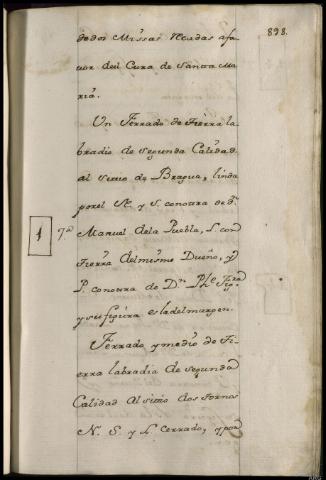 898.
dedos Missas Rezadas afa
uor del Cura de Santa Ma
ria.
Un Ferrado de Tierra la
bradia de segunda Calidad
al sitio de Bragua, linda
por el N. y S. con otra de Dn.
1 7.a Manuel dela Puebla, L. con
tierra del mismo Dueño, y
P. con otra de Dn. Phe.
y su figura es la del margen.
Ferrado y medio de Ti
erra labradia de segunda
Calidad Al sitio dos Fornos
N. S. y L. Cerrado, y por